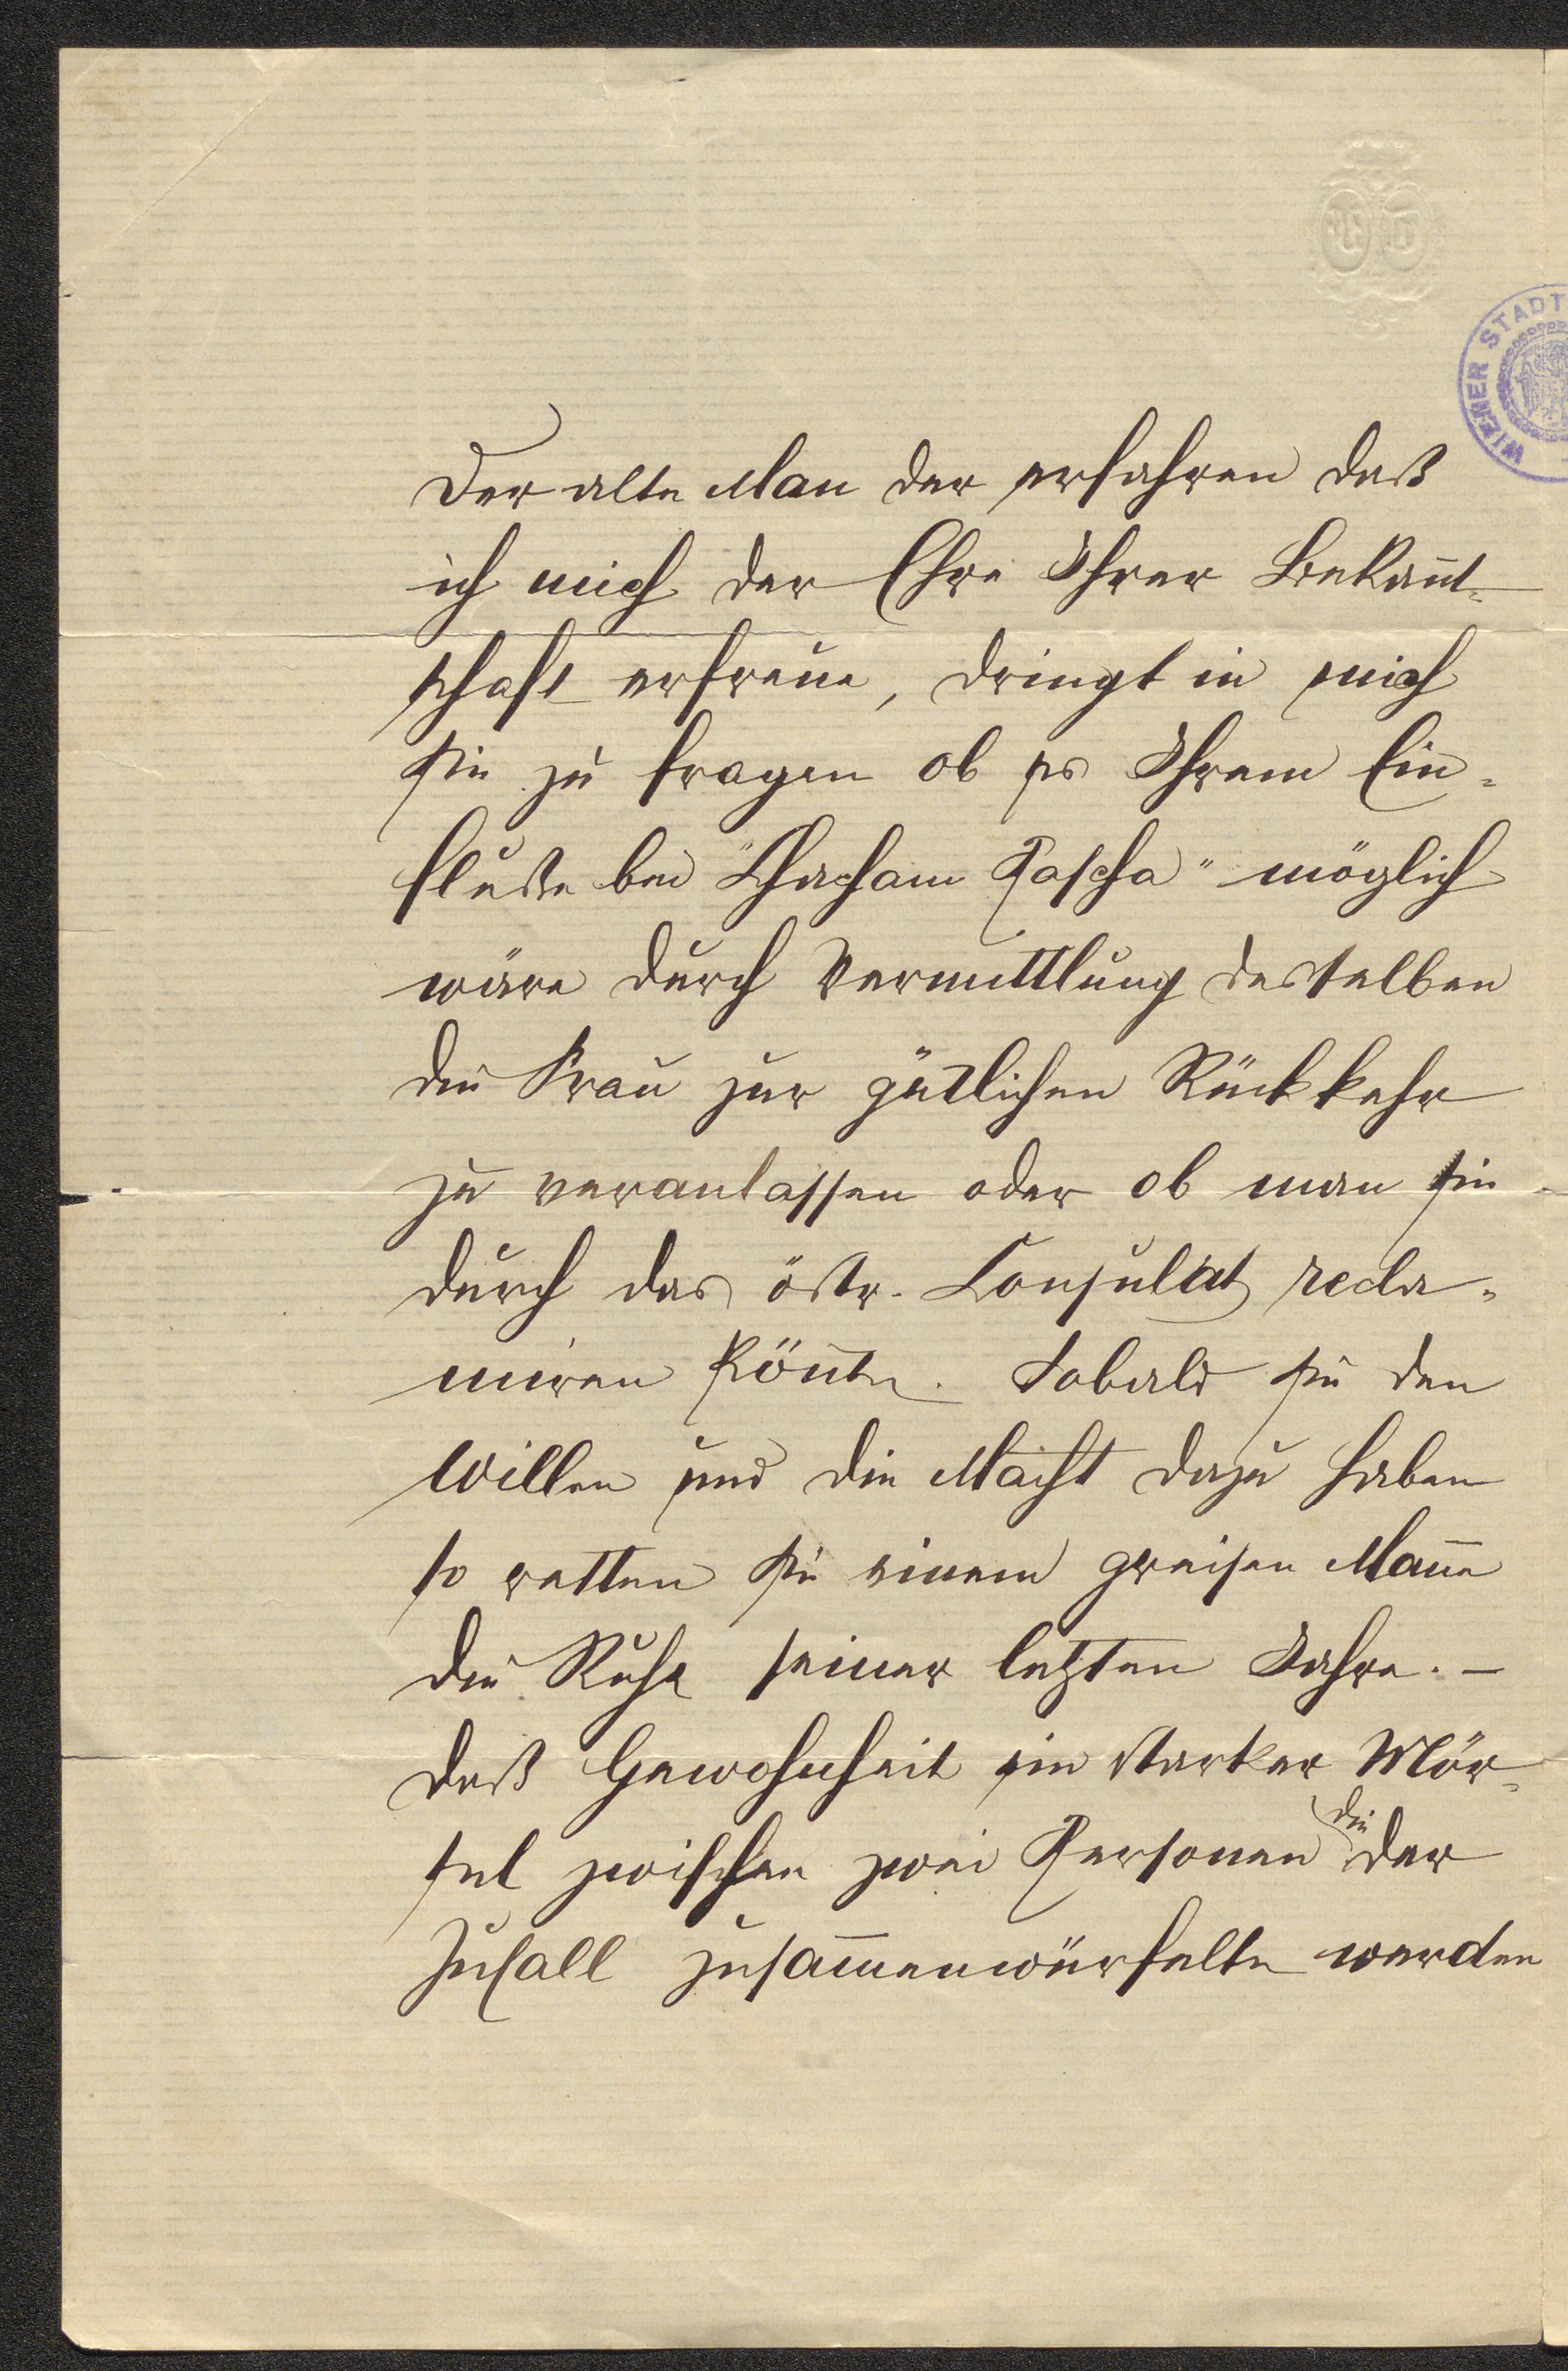 WIENER STADT
Der alte Man der erfahren daß
ich mich der Ehre Ihrer Bekan̄t-
schaft erfreue, dringt in mich
Sie zu fragen ob es Ihrem Ein-
fluße bei "Chacham Pascha" möglich
wäre durch Vermittlung desselben
die Frau zur gütlichen Rückkehr
zu veranlassen oder ob man sie
durch das östr. Consulat recla-
miren kön̄te. Sobald Sie den
Willen und die Macht dazu haben
so retten Sie einem greisen Man̄e
die Ruhe seiner letzten Jahre. –
Daß Gewohnheit ein starker Mör-
tel zwischen zwei Personen die der
Zufall zusam̄enwürfelte werden